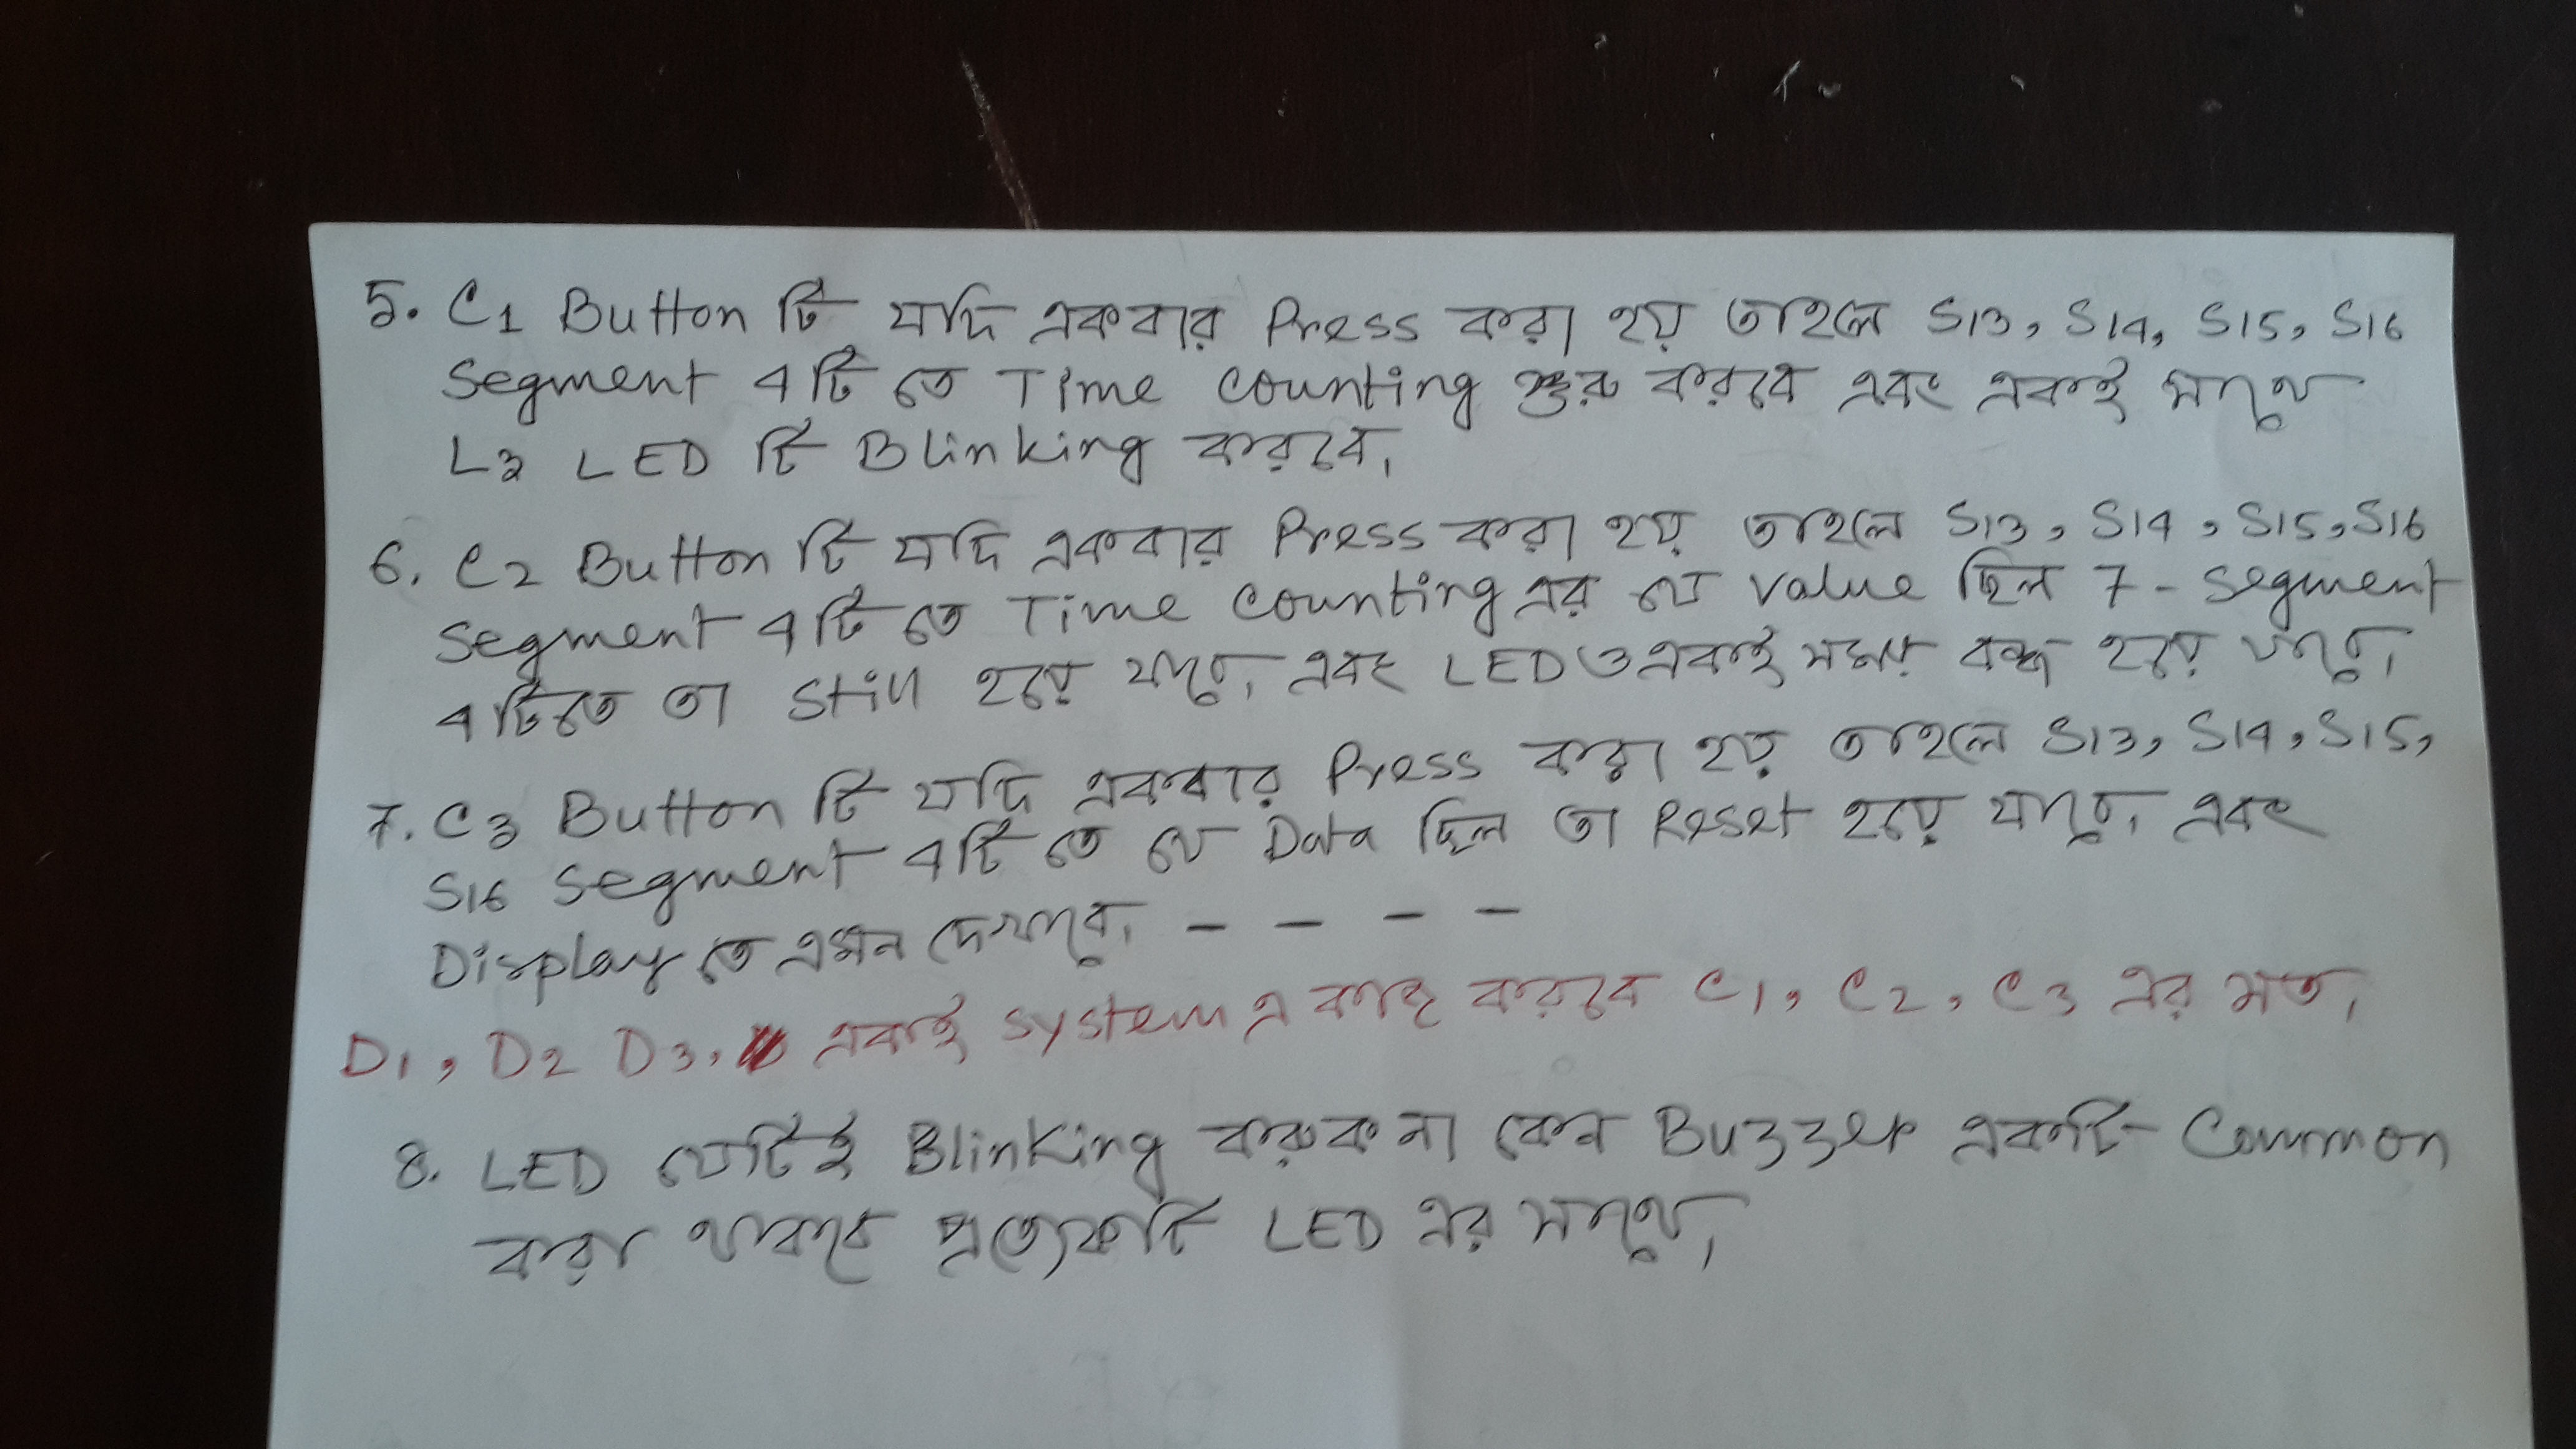 5. C1 Button টি যদি একবার Press করা হয় তাহলে S13, S14, S15, S16
Segment ৭টি তে Time counting শুরু করবে এবং একই সাথে
L3 LED টি Blinking করবে।
6. C2 Button টি যদি একবার Press করা হয় তাহলে S13, S14, S15, S16
Segment ৭টি তে Time counting এর যে value ছিল 7-segment
৭টিতে তা Still হয়ে যাবে, এবং LED ও একই সময় বন্ধ হয়ে যাবে,
7. C3 Button টি যদি একবার Press করা হয় তাহলে S13, S14, S15,
S16 Segment ৭টি তে যে Data ছিল তা Reset হয়ে যাবে, এবং
Display তে এমন দেখাবে, – – – –
D1, D2 D3, একই system এ কাজ করবে C1, C2, C3 এর মত,
8. LED যেটিই Blinking করুক না কেন Buzzer একটি Common
করা থাকবে প্রত্যেকটি LED এর সাথে,